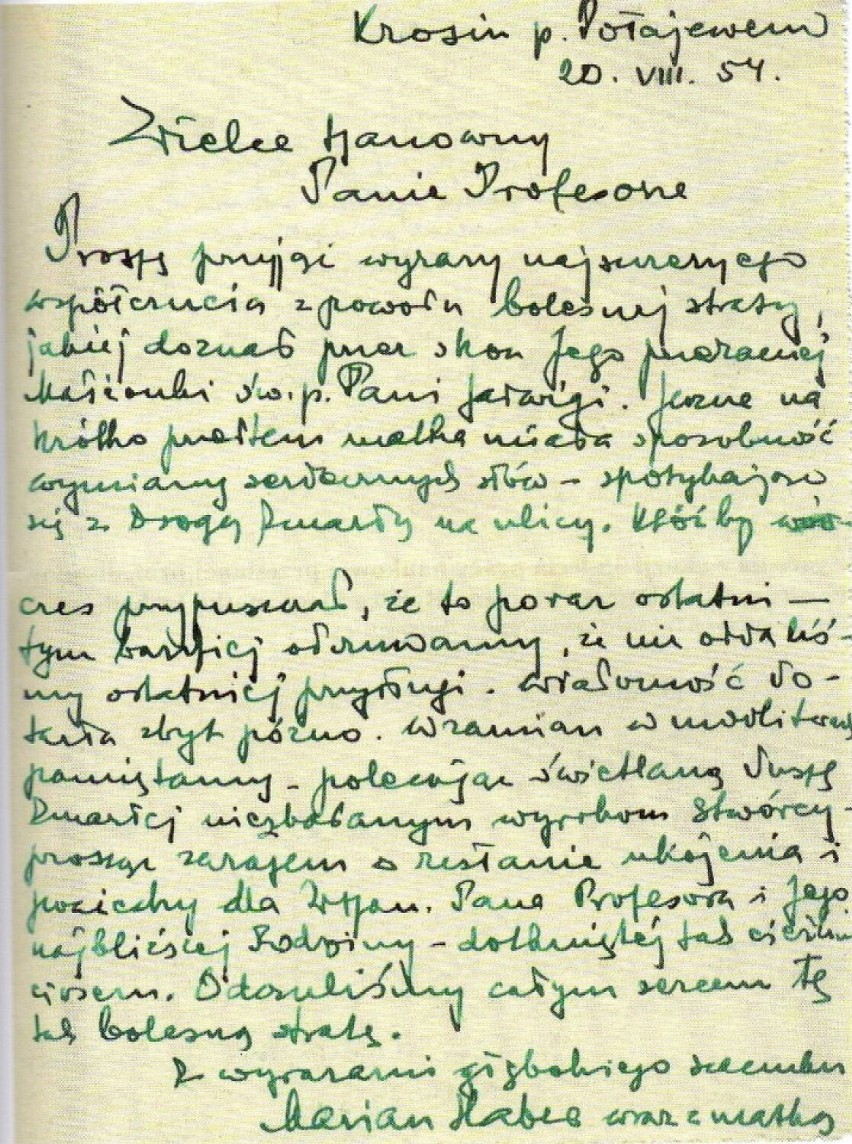 Krosin p. Połajewem
20. VIII. 54.
Wielce Szanowny
Panie Profesorze
Proszę przyjąć wyrazy najszczerszego
współczucia z powodu bolesnej straty,
jakiej doznał przez skon Jego przezacnej
Małżonki św. p. Pani Jadwigi. Jeszcze na
krótko przedtem matka miała sposobność
wymiany serdecznych słów – spotykając
się z Drogą Zmarłą na ulicy. Któżby wów-
czas przypuszczał, że to poraz ostatni –
tym bardziej odczuwamy, iż nie oddaliś-
my ostatniej przysługi. Wiadomość do-
tarła zbyt późno. Wzamian w modlitwach
pamiętamy – polecając świetlaną duszę
Zmarłej niezbadanym wyrokom Stwórcy –
prosząc zarazem o zesłanie ukojenia i
pociechy dla WSzan. Pana Profesora i Jego
najbliższej Rodziny – dotkniętej tak ciężkim
ciosem. Odczuliśmy całym sercem tę
tak bolesną stratę.
Z wyrazami głębokiego szacunku
Marian wraz z matką